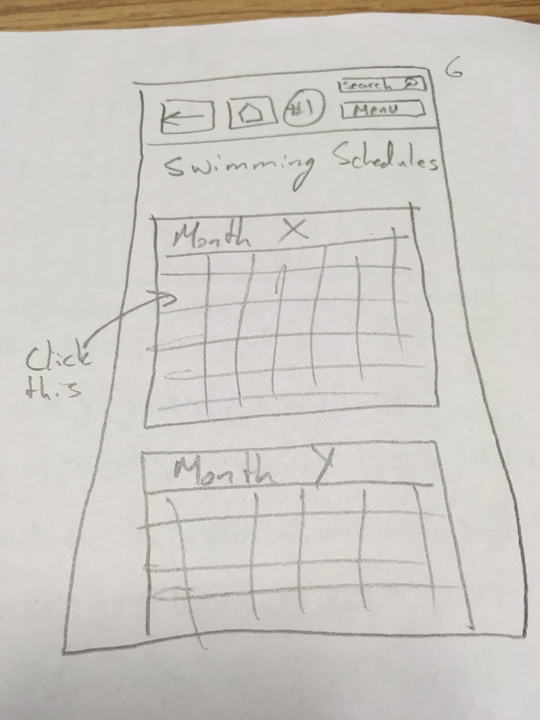 6
Search
#1
Menu
Swimming Schedules
Month X
Click
this
Month Y